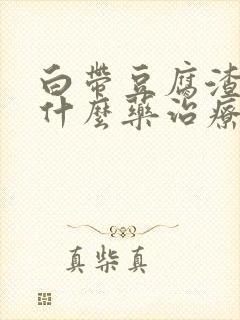 白帶豆腐渣
什麼藥治療
真柴真